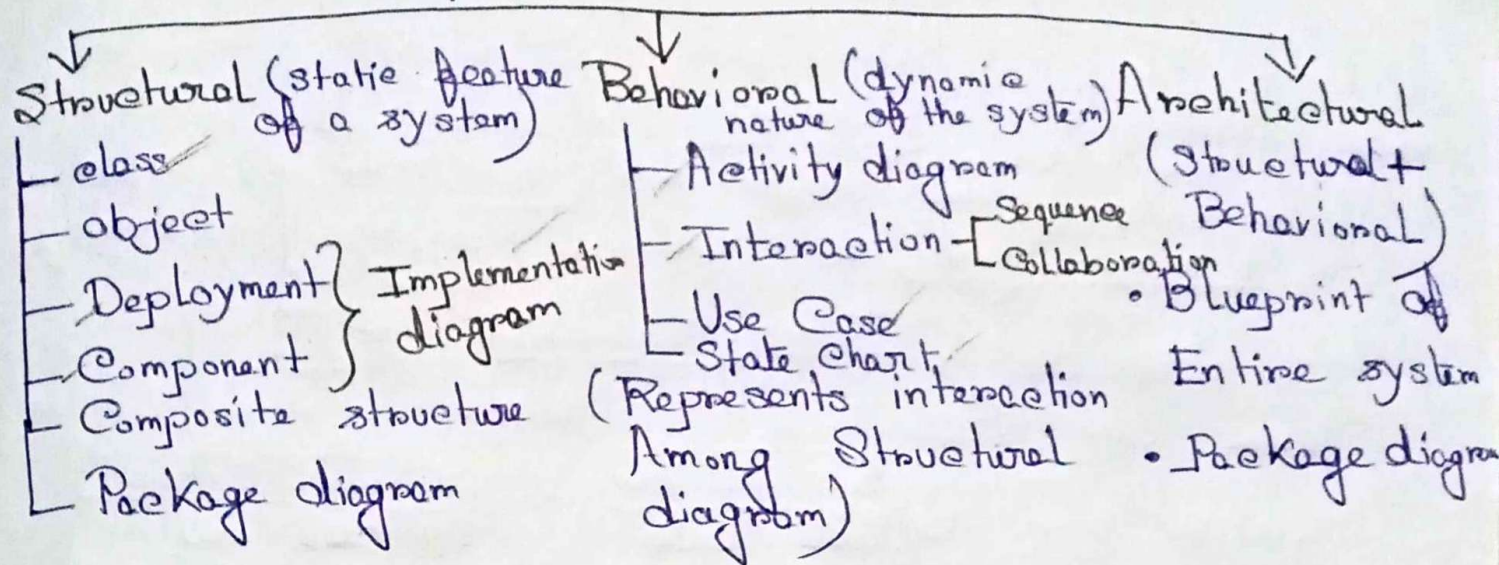 Structural (static feature
of a system)
class
object
Deployment
Component
Implementation
diagram
Composite structure
Package diagram
Behavioral (dynamic
nature of the system)
Activity diagram
Interaction
Sequence
Collaboration
Use Case
State Chart
(Represents interaction
Among Structural
diagram)
Architectural
(Structural +
Behavioral)
• Blueprint of
Entire system
• Package diagram